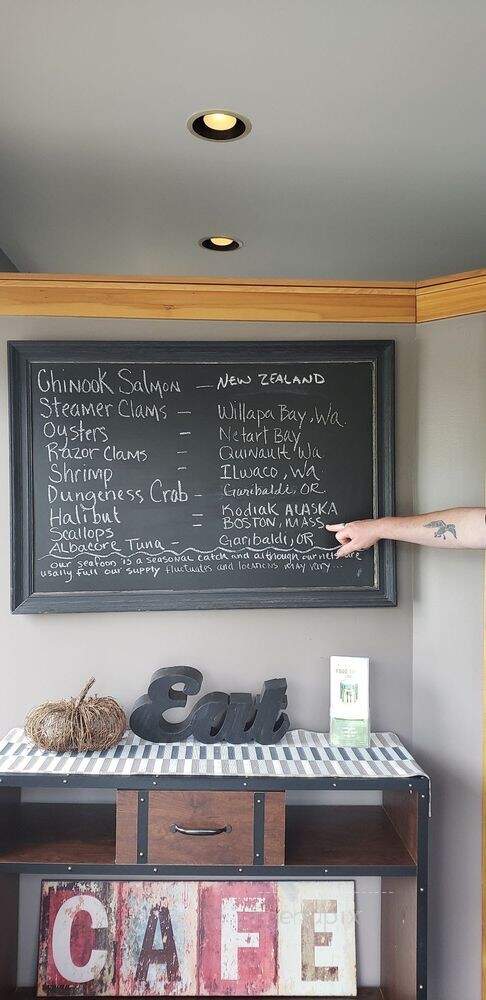 Chinook Salmon — NEW ZEALAND
Steamer Clams — Willapa Bay, Wa.
Oysters — Netart Bay
Razor Clams — Quinault, Wa
Shrimp - Ilwaco, Wa.
Dungeness Crab - Garibaldi, OR
Halibut - Kodiak ALASKA
Scallops - BOSTON, MASS
Albacore Tuna - Garibaldi, OR
our seafoon is a seasonal catch and although our nets are
usally full our supply fluctuates and locations may vary...
Eat
CAFE